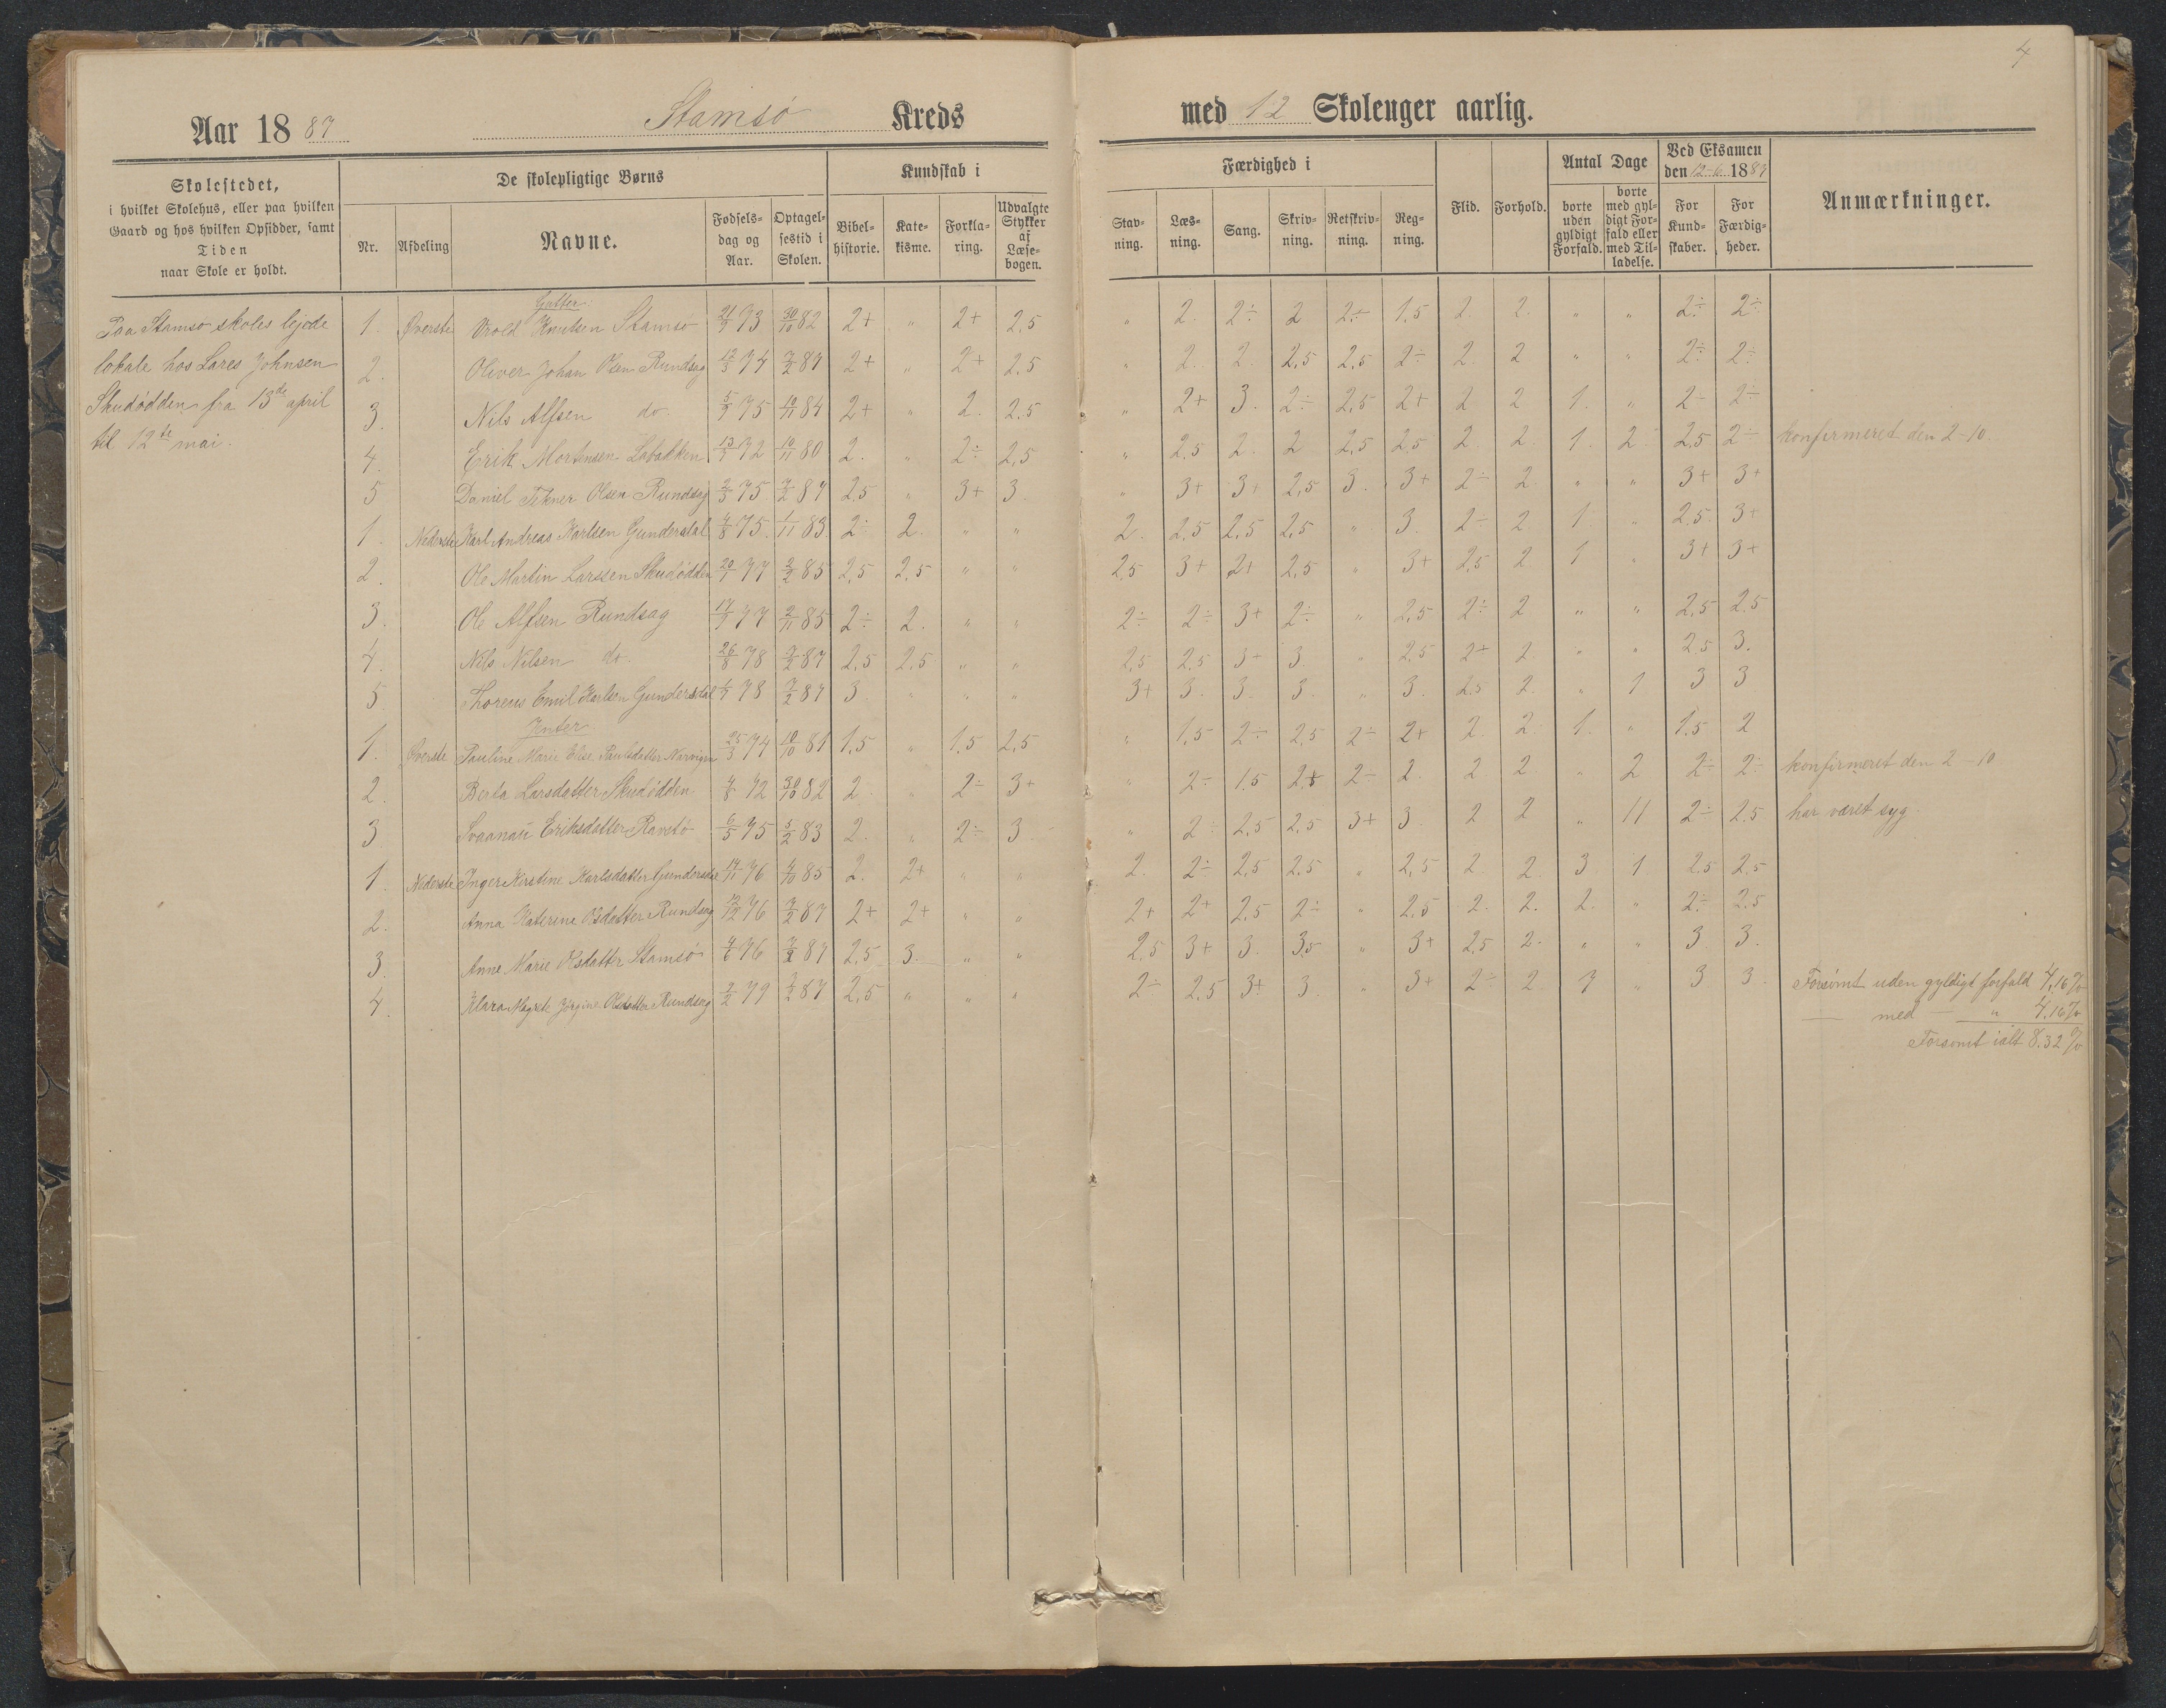 4
Aar 18 87 Stamsø Kreds med 12 Skoleuger aarlig.
Skolestedet, i hvilket Skolehus, eller paa hvilken Gaard og hos hvilken Opsidder, samt Tiden naar Skole er holdt.
De skolepligtige Børns
Nr. Afdeling Navne. Fødsels-dag og Aar. Optagel-sestid i Skolen.
Kundskab i
Bibel-historie. Kate-kisme. Forkla-ring. Udvalgte Stykker af Læse-bogen.
Færdighed i
Stav-ning. Læs-ning. Sang. Skriv-ning. Retskriv-ning. Reg-ning.
Flid. Forhold.
Antal Dage
borte uden gyldigt Forfald. borte med gyl-digt For-fald eller med Til-ladelse.
Ved Eksamen den 12-6 1887
For Kund-skaber. For Færdig-heder.
Anmærkninger.
Paa Stamsø skoles lejede
lokale hos Lares Johnsen
Skudødden fra 13de april
til 12te mai.
Gutter
1. Øverste Knutsen Stamsø 21/9 73 30/10 82 2+ " 2+ 2,5 " 2. 2÷ 2 2÷ 1,5 2. 2. " " 2÷ 2÷
2. Oliver Johan Olsen Rundsag 12/5 74 7/2 87 2+ " 2+ 2,5 " 2. 2. 2,5 2,5 2÷ 2. 2 " " 2÷ 2÷
3. Nils Alfsen do. 5/9 75 10/11 84 2+ " 2. 2,5 " 2+ 3. 2÷ 2,5 2+ 2 2 1. " 2÷ 2÷
4. Erik Mortensen 13/7 72 10/11 80 2. " 2÷ 2,5 " 2,5 2. 2 2,5 2,5 2. 2. 1. 2 2,5 2÷ konfirmeret den 2-10.
5 Daniel Olsen Rundsag 2/3 75 7/2 87 2,5 " 3+ 3. " 3+ 3+ 2,5 3. 3+ 2÷ 2. " " 3+ 3+
1. Nederste Karl Andreas Karlsen Gundersdal 4/8 75. 1/11 83. 2÷ 2. " " 2. 2,5 2,5 2,5 " 3. 2÷ 2. 1 " 2,5 3+
2. Ole Martin Larssen Skudødden 20/1 77 2/2 85 2,5 2,5 " " 2,5 3+ 2+ 2,5 " 3+ 2,5 2. 1 " 3+ 3+
3. Ole Alfsen Rundsag 17/7 77 2/11 85 2÷ 2. " " 2÷ 2÷ 3+ 2÷ " 2,5 2÷ 2 " " 2,5 2,5
4. Nils Nilsen do. 26/8 78 7/2 87 2,5 2,5 " " 2,5 2,5 3+ 3. " 2,5 2+ 2. " " 2,5 3.
5. Thoreus Emil Karlsen Gundersdal 78 7/2 87 3. " " " 3+ 3. 3. 3. " 3. 2,5 2. " 1 3 3
Jenter
1. Øverste Pauline Marie Elise Paulsdatter 25/3 74 10/10 81 1,5 " 1,5 2,5 " 1,5 2÷ 2,5 2÷ 2+ 2. 2. 1. " 1.5 2
2. Berta Larsdatter Skudødden 4/8 72 30/10 82 2. " 2÷ 3+ " 2÷ 1,5 2÷ 2. 2 2. " 2 2÷ 2÷ konfirmeret den 2-10
3 Eriksdatter 6/5 75 5/2 83 2. " 2÷ 3. " 2÷ 2,5 2,5 3+ 3. 2 2 " 11 2÷ 2,5 har været syg.
1. Nederste Inger Kirstine Karlsdatter 14/11 76 4/10 85 2. 2+ " " 2. 2÷ 2,5 2,5 " 2,5 2. 2. 3 1 2,5 2,5
2. Anna Katerine Olsdatter Rundsag 12/12 76 7/2 87 2+ 2+ " " 2+ 2+ 2,5 2÷ " 2,5 2. 2. 2. " 2÷ 2,5
3. Anne Marie Olsdatter Stamsø 4/6 76 7/2 87 2,5 3. " " 2,5 3+ 3. 3,5 " 3+ 2,5 2. " " 3 3.
4. Klara Magrete Jørgine Olsdatter Rundsag 2/2 79 7/2 87 2,5 " " " 2÷ 2,5 3+ 3. " 3+ 2÷ 2. 7 " 3. 3. Forsømt uden gyldigt forfald 4,16%
— med — " 4,16%
Forsømt ialt 8,32%